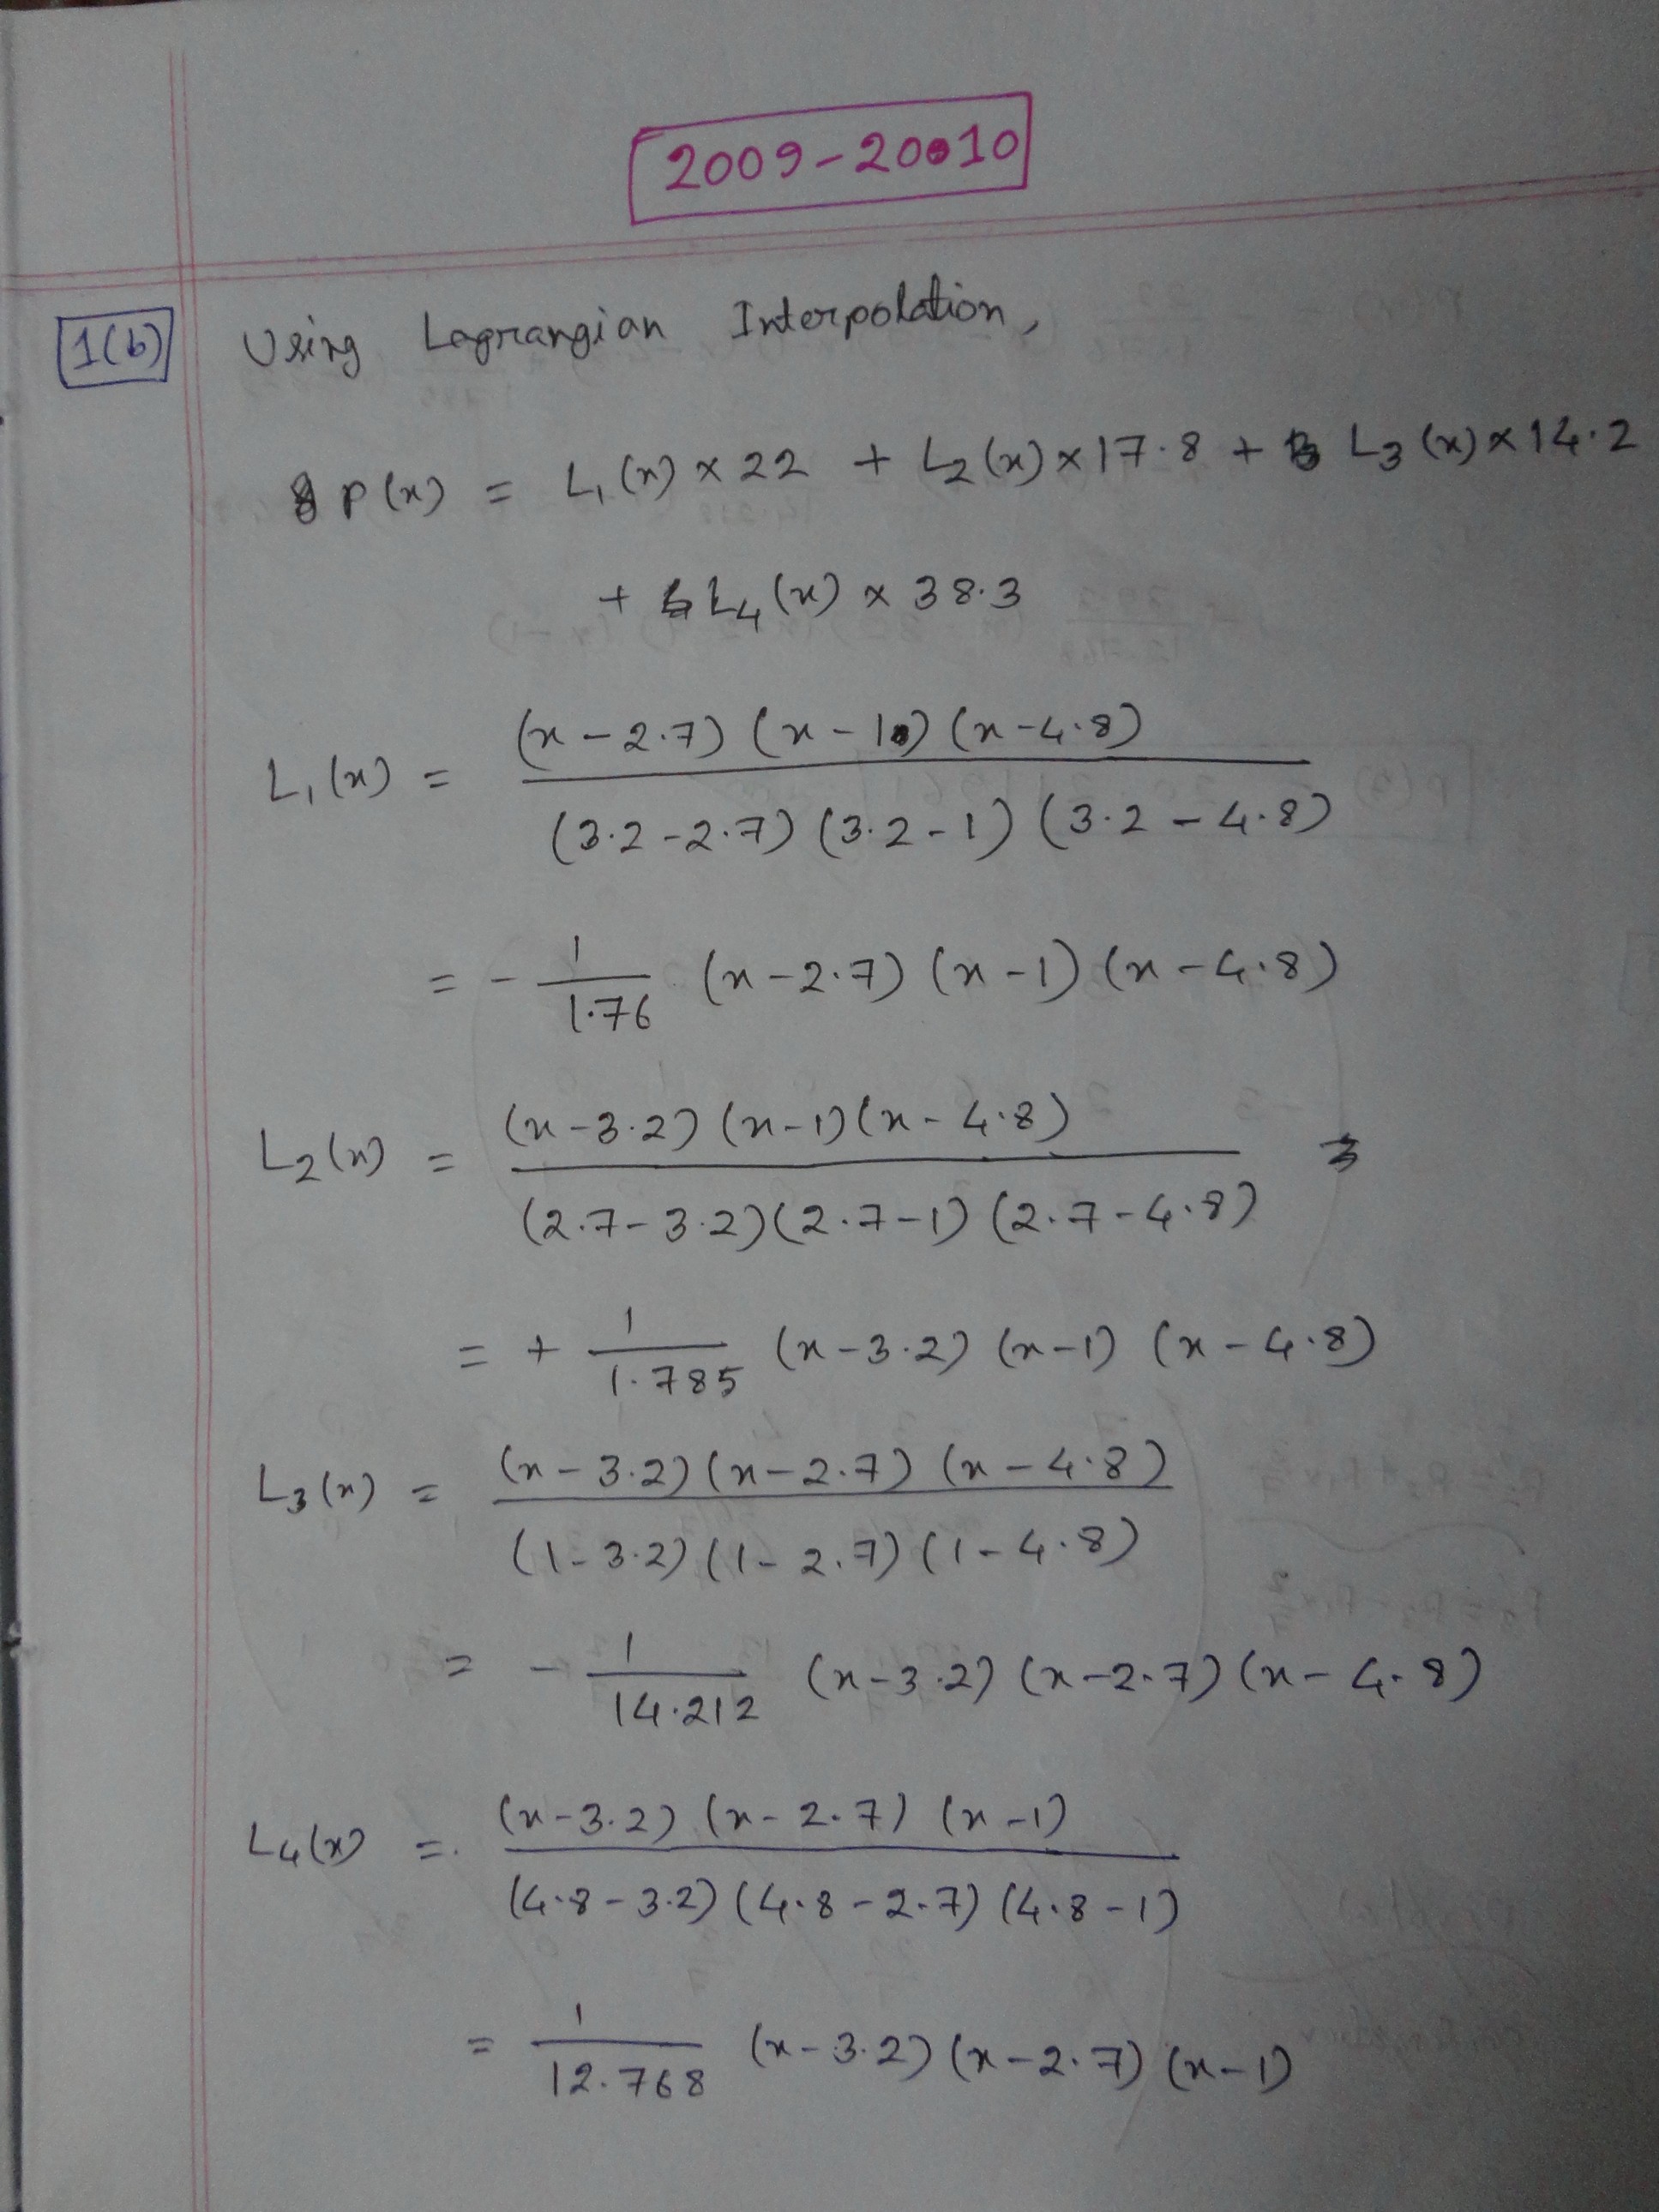 2009-20010
1(b) Using Lagrangian Interpolation,
P(x) = L₁(x) × 22 + L₂(x) × 17.8 + L₃(x) × 14.2
+ L₄(x) × 38.3
L₁(x) = (x-2.7)(x-1)(x-4.8)
(3.2-2.7)(3.2-1)(3.2-4.8)
= - 1/1.76 (x-2.7)(x-1)(x-4.8)
L₂(x) = (x-3.2)(x-1)(x-4.8)
(2.7-3.2)(2.7-1)(2.7-4.8)
= + 1/1.785 (x-3.2)(x-1)(x-4.8)
L₃(x) = (x-3.2)(x-2.7)(x-4.8)
(1-3.2)(1-2.7)(1-4.8)
= - 1/14.212 (x-3.2)(x-2.7)(x-4.8)
L₄(x) = (x-3.2)(x-2.7)(x-1)
(4.8-3.2)(4.8-2.7)(4.8-1)
= 1/12.768 (x-3.2)(x-2.7)(x-1)